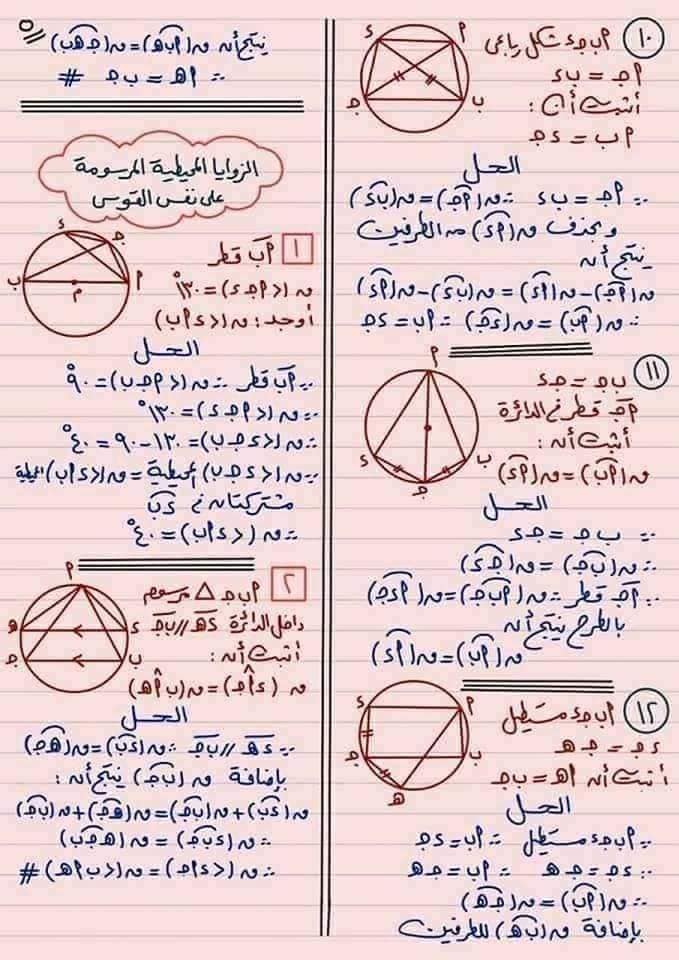 ١٠ أ ب ج د شكل رباعى
أ ج = ب د
أثبت أن :
أ ب = د ج
الحل
∵ أ ج = ب د ∴ ق(أج) = ق(بد)
وبحذف ق(أد) من الطرفين
ينتج أن
ق(أج) - ق(أد) = ق(بد) - ق(أد)
∴ ق(أب) = ق(دج) ∴ أ ب = د ج
١١ ب ج = ج د
أج قطر فى الدائرة
أثبت أن :
ق(أب) = ق(أد)
الحل
∵ ب ج = ج د
∴ ق(بج) = ق(جد)
∵ أج قطر ∴ ق(أبج) = ق(أدج)
بالطرح ينتج أن
ق(أب) = ق(أد)
١٢ أ ب ج د مستطيل
د ج = ج ه
أثبت أن أ ه = ب ج
الحل
∵ أ ب ج د مستطيل ∴ أ ب = د ج
∵ د ج = ج ه ∴ أ ب = ج ه
∴ ق(أب) = ق(جه)
بإضافة ق(به) للطرفين
٥
ينتج أن ق(أبه) = ق(جهب)
∴ أ ه = ب ج #
الزوايا المحيطية المرسومة
على نفس القوس
١ أب قطر
ق(> أ ج د) = ١٣٠°
أوجد : ق(> د أ ب)
الحل
∵ أب قطر ∴ ق(> أ ج ب) = ٩٠°
∵ ق(> أ ج د) = ١٣٠°
∴ ق(> د ج ب) = ١٣٠ - ٩٠ = ٤٠°
∵ ق(> د ج ب) المحيطية = ق(> د أ ب) المحيطية
مشتركتان فى دب
∴ ق(> د أ ب) = ٤٠°
٢ أ ب ج △ مرسوم
داخل الدائرة ده // بج
أثبت أن :
ق(د أ ج) = ق(ب أ ه)
الحل
∵ ده // بج ∴ ق(دب) = ق(هج)
بإضافة ق(بج) ينتج أن :
ق(دب) + ق(بج) = ق(هج) + ق(بج)
∴ ق(دبج) = ق(هجب)
∴ ق(> د أ ج) = ق(> ب أ ه) #